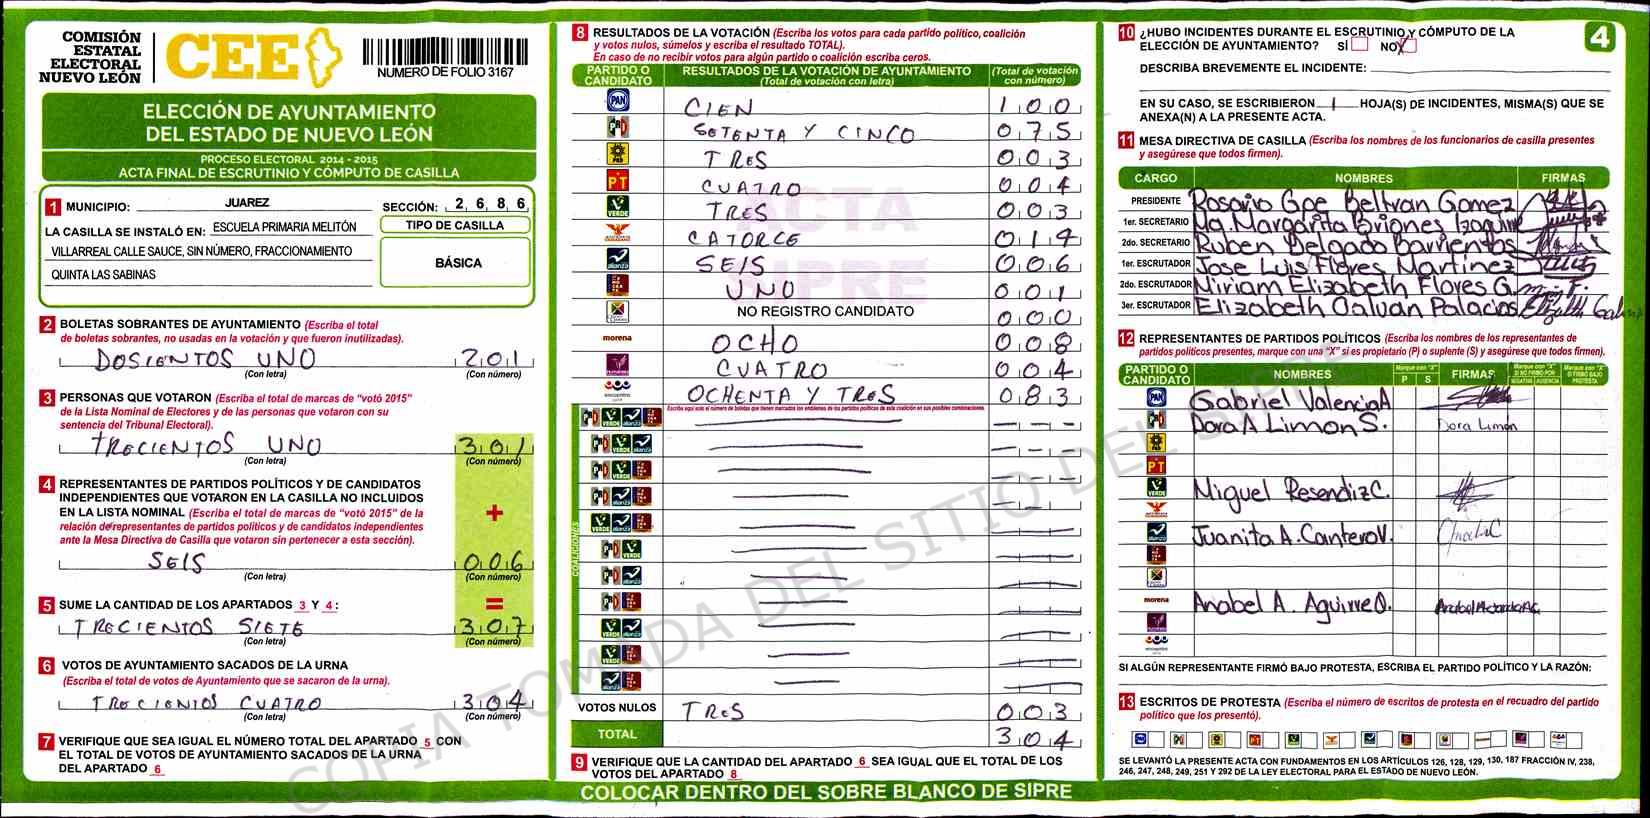 COMISIÓN
ESTATAL
ELECTORAL
NUEVO LEÓN
CEE
NUMERO DE FOLIO 3167
ELECCIÓN DE AYUNTAMIENTO
DEL ESTADO DE NUEVO LEÓN
PROCESO ELECTORAL 2014 - 2015
ACTA FINAL DE ESCRUTINIO Y CÓMPUTO DE CASILLA
1 MUNICIPIO: JUAREZ SECCIÓN: 2 6 8 6
LA CASILLA SE INSTALÓ EN: ESCUELA PRIMARIA MELITÓN
VILLARREAL CALLE SAUCE, SIN NÚMERO, FRACCIONAMIENTO
QUINTA LAS SABINAS
TIPO DE CASILLA
BÁSICA
2 BOLETAS SOBRANTES DE AYUNTAMIENTO (Escriba el total
de boletas sobrantes, no usadas en la votación y que fueron inutilizadas).
DOSIENTOS UNO 201
(Con letra) (Con número)
3 PERSONAS QUE VOTARON (Escriba el total de marcas de "votó 2015"
de la Lista Nominal de Electores y de las personas que votaron con su
sentencia del Tribunal Electoral).
TRECIENTOS UNO 301
(Con letra) (Con número)
4 REPRESENTANTES DE PARTIDOS POLÍTICOS Y DE CANDIDATOS
INDEPENDIENTES QUE VOTARON EN LA CASILLA NO INCLUIDOS
EN LA LISTA NOMINAL (Escriba el total de marcas de "votó 2015" de la
relación de representantes de partidos políticos y de candidatos independientes
ante la Mesa Directiva de Casilla que votaron sin pertenecer a esta sección).
+
SEIS 006
(Con letra) (Con número)
=
5 SUME LA CANTIDAD DE LOS APARTADOS 3 Y 4:
TRECIENTOS SIETE 307
(Con letra) (Con número)
6 VOTOS DE AYUNTAMIENTO SACADOS DE LA URNA
(Escriba el total de votos de Ayuntamiento que se sacaron de la urna).
TRECIENTOS CUATRO 304
(Con letra) (Con número)
7 VERIFIQUE QUE SEA IGUAL EL NÚMERO TOTAL DEL APARTADO 5 CON
EL TOTAL DE VOTOS DE AYUNTAMIENTO SACADOS DE LA URNA
DEL APARTADO 6
8 RESULTADOS DE LA VOTACIÓN (Escriba los votos para cada partido político, coalición
y votos nulos, súmelos y escriba el resultado TOTAL).
En caso de no recibir votos para algún partido o coalición escriba ceros.
PARTIDO O CANDIDATO RESULTADOS DE LA VOTACIÓN DE AYUNTAMIENTO (Total de votación con letra) (Total de votación con número)
PAN CIEN 100
PRD SETENTA Y CINCO 075
PRD TRES 003
PT CUATRO 004
VERDE TRES 003
CATORCE 014
alianza SEIS 006
UNO 001
NO REGISTRO CANDIDATO 000
morena OCHO 008
CUATRO 004
encuentro OCHENTA Y TRES 083
Escriba aquí solo el número de boletas que tienen marcados los emblemas de los partidos políticos de esta coalición en sus posibles combinaciones.
COALICIONES
VOTOS NULOS TRES 003
TOTAL 304
9 VERIFIQUE QUE LA CANTIDAD DEL APARTADO 6 SEA IGUAL QUE EL TOTAL DE LOS
VOTOS DEL APARTADO 8
COLOCAR DENTRO DEL SOBRE BLANCO DE SIPRE
ACTA
SIPRE
COPIA TOMADA DEL SITIO DEL SIPRE
10 ¿HUBO INCIDENTES DURANTE EL ESCRUTINIO Y CÓMPUTO DE LA
ELECCIÓN DE AYUNTAMIENTO? SÍ NO X
4
DESCRIBA BREVEMENTE EL INCIDENTE:
EN SU CASO, SE ESCRIBIERON 1 HOJA(S) DE INCIDENTES, MISMA(S) QUE SE
ANEXA(N) A LA PRESENTE ACTA.
11 MESA DIRECTIVA DE CASILLA (Escriba los nombres de los funcionarios de casilla presentes
y asegúrese que todos firmen).
CARGO NOMBRES FIRMAS
PRESIDENTE Rosario Gpe Beltran Gomez
1er. SECRETARIO Ma. Margarita Briones Izaguirre
2do. SECRETARIO Ruben Delgado Barrientos
1er. ESCRUTADOR Jose Luis Flores Martinez
2do. ESCRUTADOR Miriam Elizabeth Flores G.
3er. ESCRUTADOR Elizabeth Galvan Palacios
12 REPRESENTANTES DE PARTIDOS POLÍTICOS (Escriba los nombres de los representantes de
partidos políticos presentes, marque con una "X" si es propietario (P) o suplente (S) y asegúrese que todos firmen).
PARTIDO O CANDIDATO NOMBRES Marque con "X" P S FIRMAS Marque con "X" SI NO FIRMO POR NEGATIVA AUSENCIA Marque con "X" SI FIRMO BAJO PROTESTA
PAN Gabriel Valencia A
Dora A Limon S. Dora Limón
PRD
PT
VERDE Miguel Resendiz C.
alianza Juanita A. Cantero V.
morena Anabel A. Aguirre O.
encuentro
SI ALGÚN REPRESENTANTE FIRMÓ BAJO PROTESTA, ESCRIBA EL PARTIDO POLÍTICO Y LA RAZÓN:
13 ESCRITOS DE PROTESTA (Escriba el número de escritos de protesta en el recuadro del partido
político que los presentó).
SE LEVANTÓ LA PRESENTE ACTA CON FUNDAMENTOS EN LOS ARTÍCULOS 126, 128, 129, 130, 187 FRACCIÓN IV, 238,
246, 247, 248, 249, 251 Y 292 DE LA LEY ELECTORAL PARA EL ESTADO DE NUEVO LEÓN.